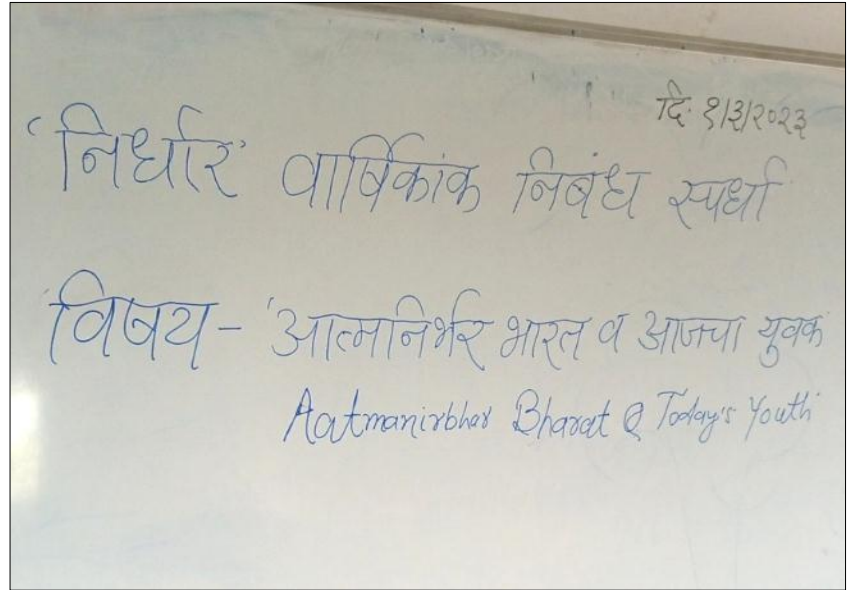 दि. १/३/२०२३
‘निर्धार’ वार्षिकांक निबंध स्पर्धा
विषय - 'आत्मनिर्भर भारत व आजचा युवक
Aatmanirbhar Bharat & Today's Youth